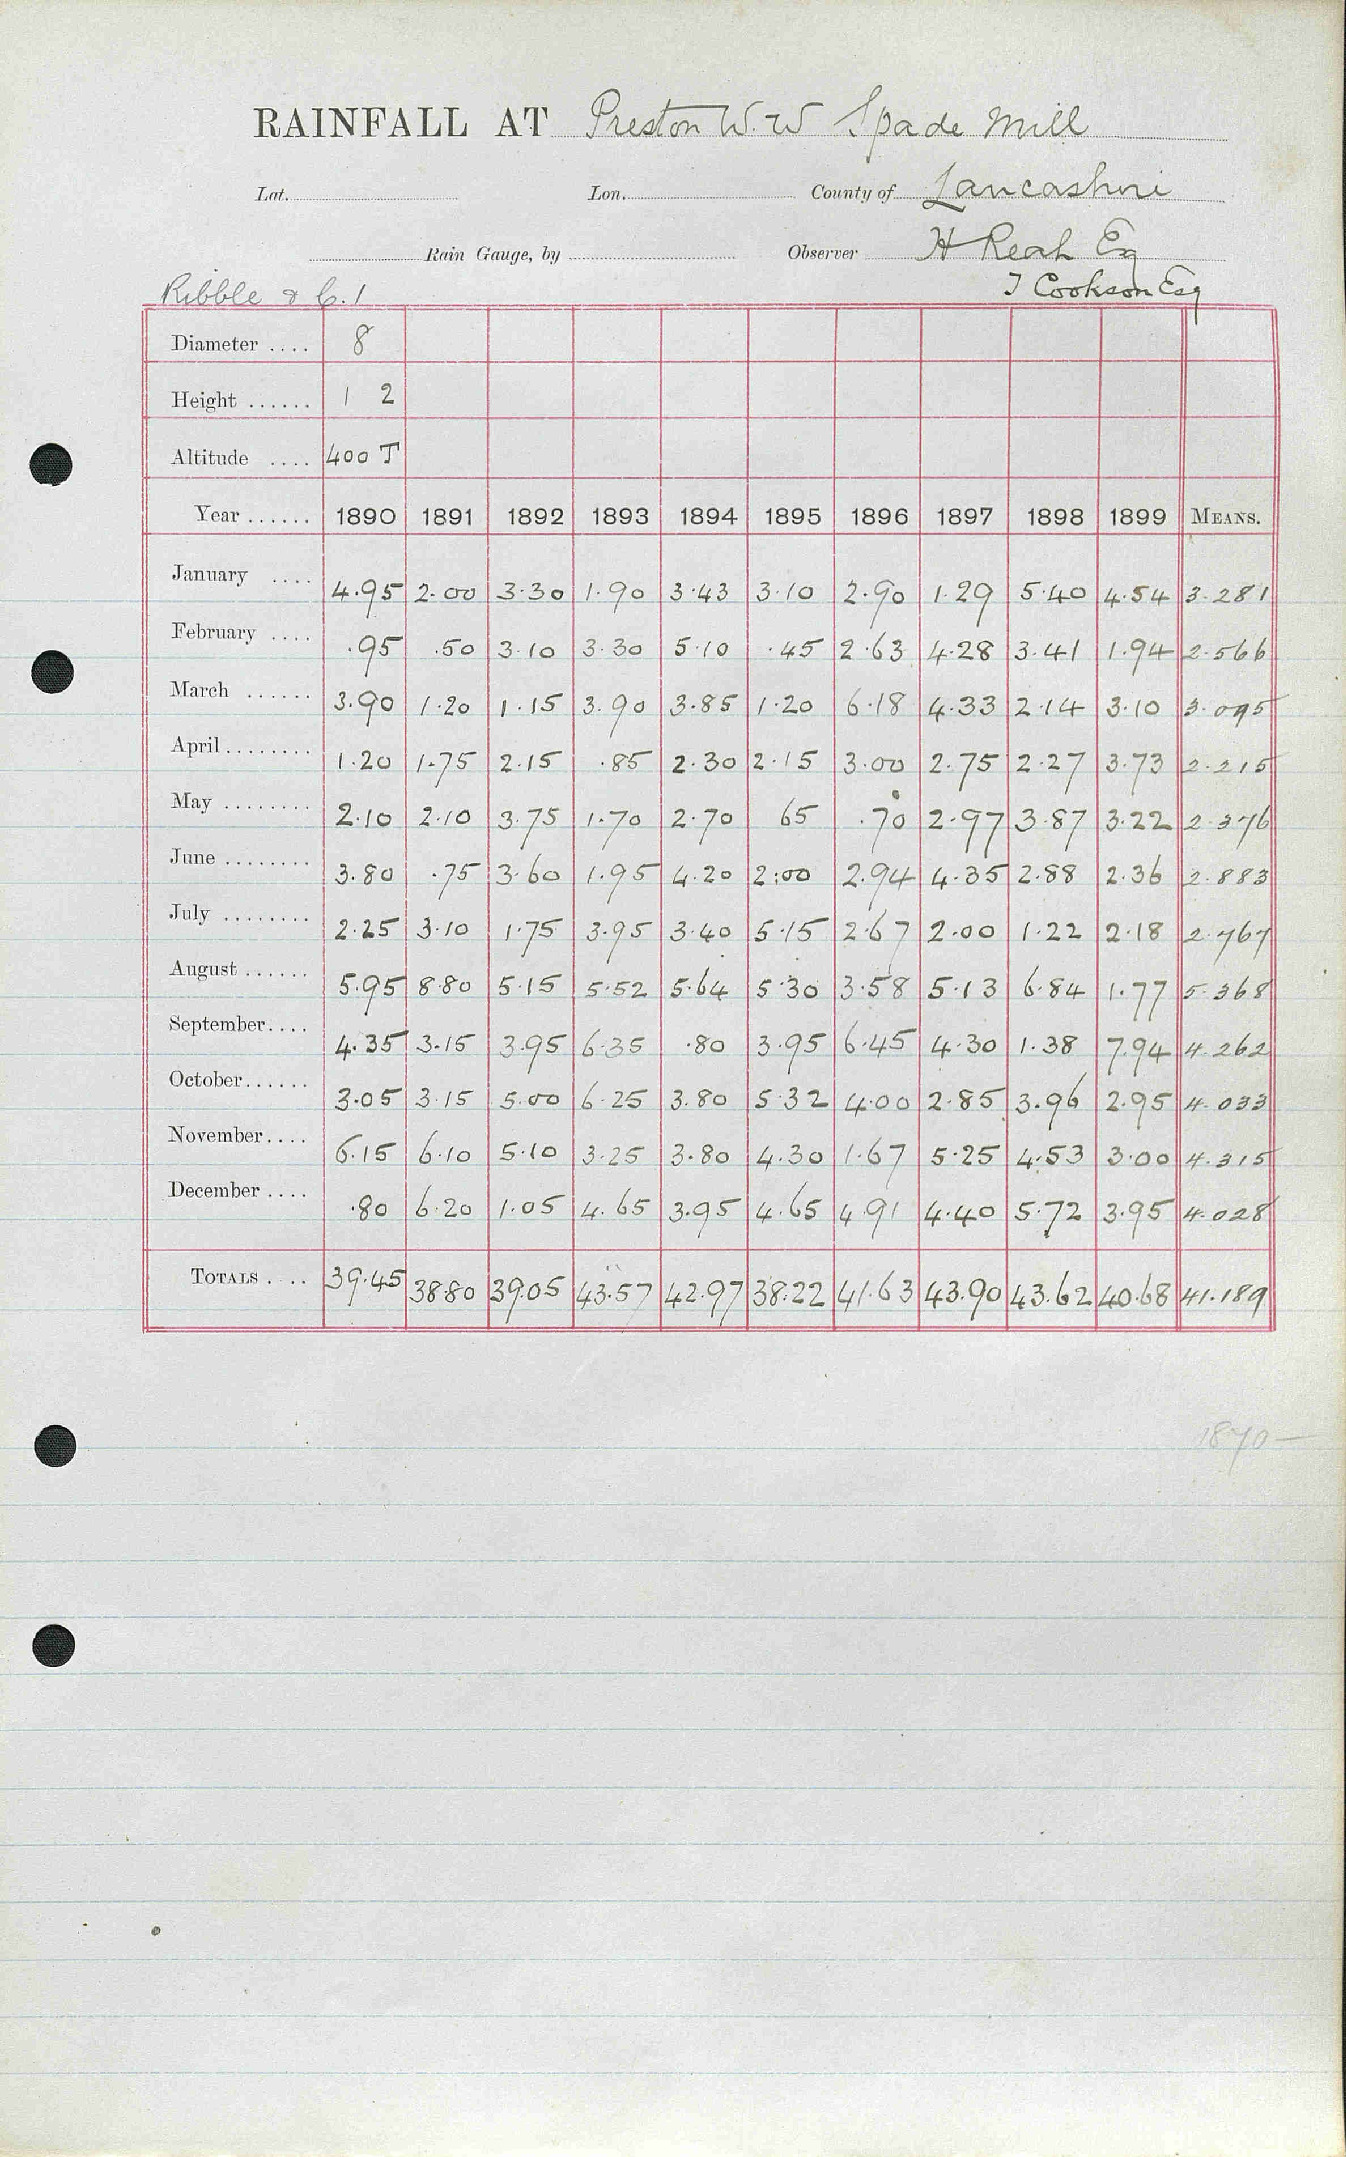 RAINFALL AT Preston W.W Spade Mill
Lat. Lon. County of Lancashire
Rain Gauge, by Observer H Reah Esq
Ribble & C.1 T Cookson Esq
Diameter .... 8
Height ...... 1 2
Altitude .... 400 T
Year ...... 1890 1891 1892 1893 1894 1895 1896 1897 1898 1899 MEANS.
January .... 4.95 2.00 3.30 1.90 3.43 3.10 2.90 1.29 5.40 4.54 3.281
February .... .95 .50 3.10 3.30 5.10 .45 2.63 4.28 3.41 1.94 2.566
March ...... 3.90 1.20 1.15 3.90 3.85 1.20 6.18 4.33 2.14 3.10 3.095
April ........ 1.20 1.75 2.15 .85 2.30 2.15 3.00 2.75 2.27 3.73 2.215
May ........ 2.10 2.10 3.75 1.70 2.70 65 .70 2.97 3.87 3.22 2.376
June ........ 3.80 .75 3.60 1.95 4.20 2.00 2.94 4.35 2.88 2.36 2.883
July ........ 2.25 3.10 1.75 3.95 3.40 5.15 2.67 2.00 1.22 2.18 2.767
August ...... 5.95 8.80 5.15 5.52 5.64 5.30 3.58 5.13 6.84 1.77 5.368
September .... 4.35 3.15 3.95 6.35 .80 3.95 6.45 4.30 1.38 7.94 4.262
October ...... 3.05 3.15 5.00 6.25 3.80 5.32 4.00 2.85 3.96 2.95 4.033
November .... 6.15 6.10 5.10 3.25 3.80 4.30 1.67 5.25 4.53 3.00 4.315
December .... .80 6.20 1.05 4.65 3.95 4.65 4.91 4.40 5.72 3.95 4.028
TOTALS .... 39.45 38.80 39.05 43.57 42.97 38.22 41.63 43.90 43.62 40.68 41.189
1870—